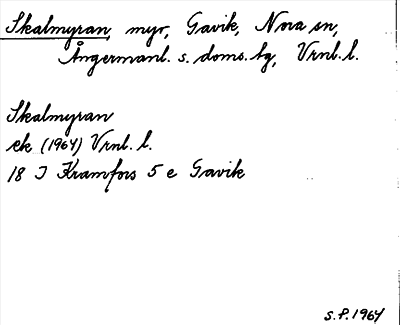 Skalmyran, myr, Gavik, Nora sn,
Ångermanl. s. doms. hg, Vrnl. l.
Skalmyran
ek (1964) Vrnl. l.
18 I Kramfors 5 e Gavik
S.F. 1964